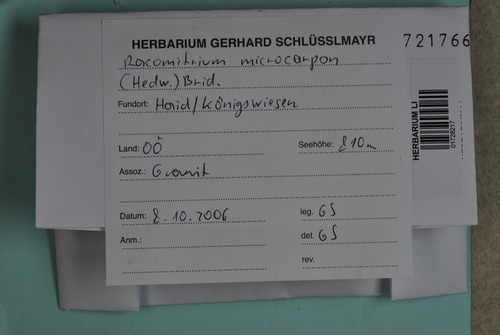 HERBARIUM GERHARD SCHLÜSSLMAYR
721766
Racomitrium microcarpon
(Hedw.) Brid.
Fundort: Haid/Königswiesen
Land: OÖ
Seehöhe: 810m
Assoz.: Granit
Datum: 8.10.2006
leg. GS
Anm.:
det. GS
rev.
HERBARIUM LI
01728217